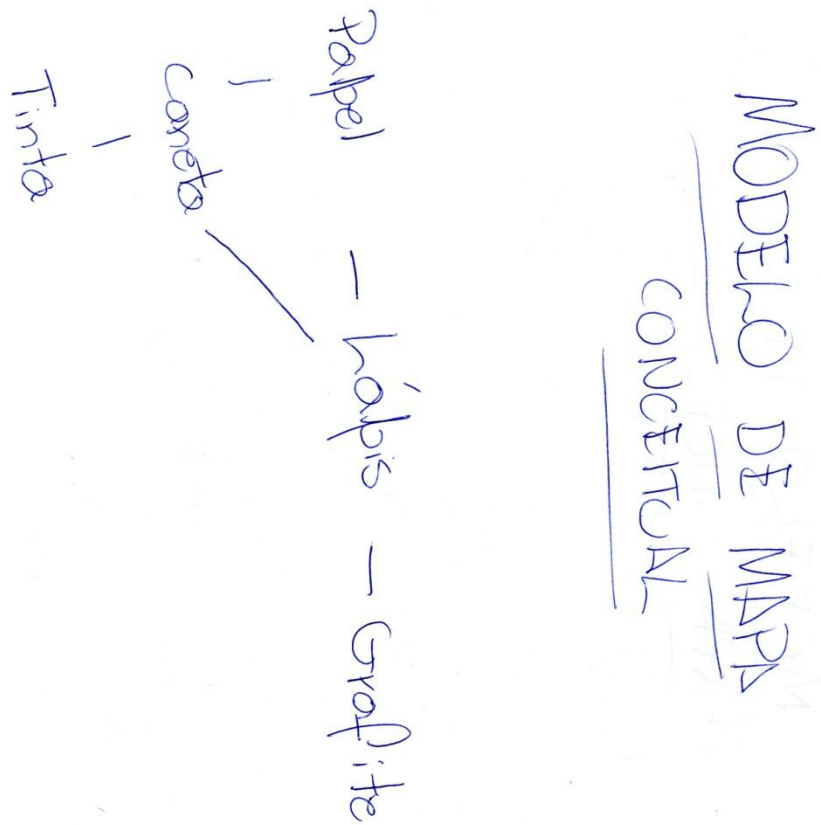 MODELO DE MAPA
CONCEITUAL
Papel — Lápis — Grafite
Caneta
Tinta